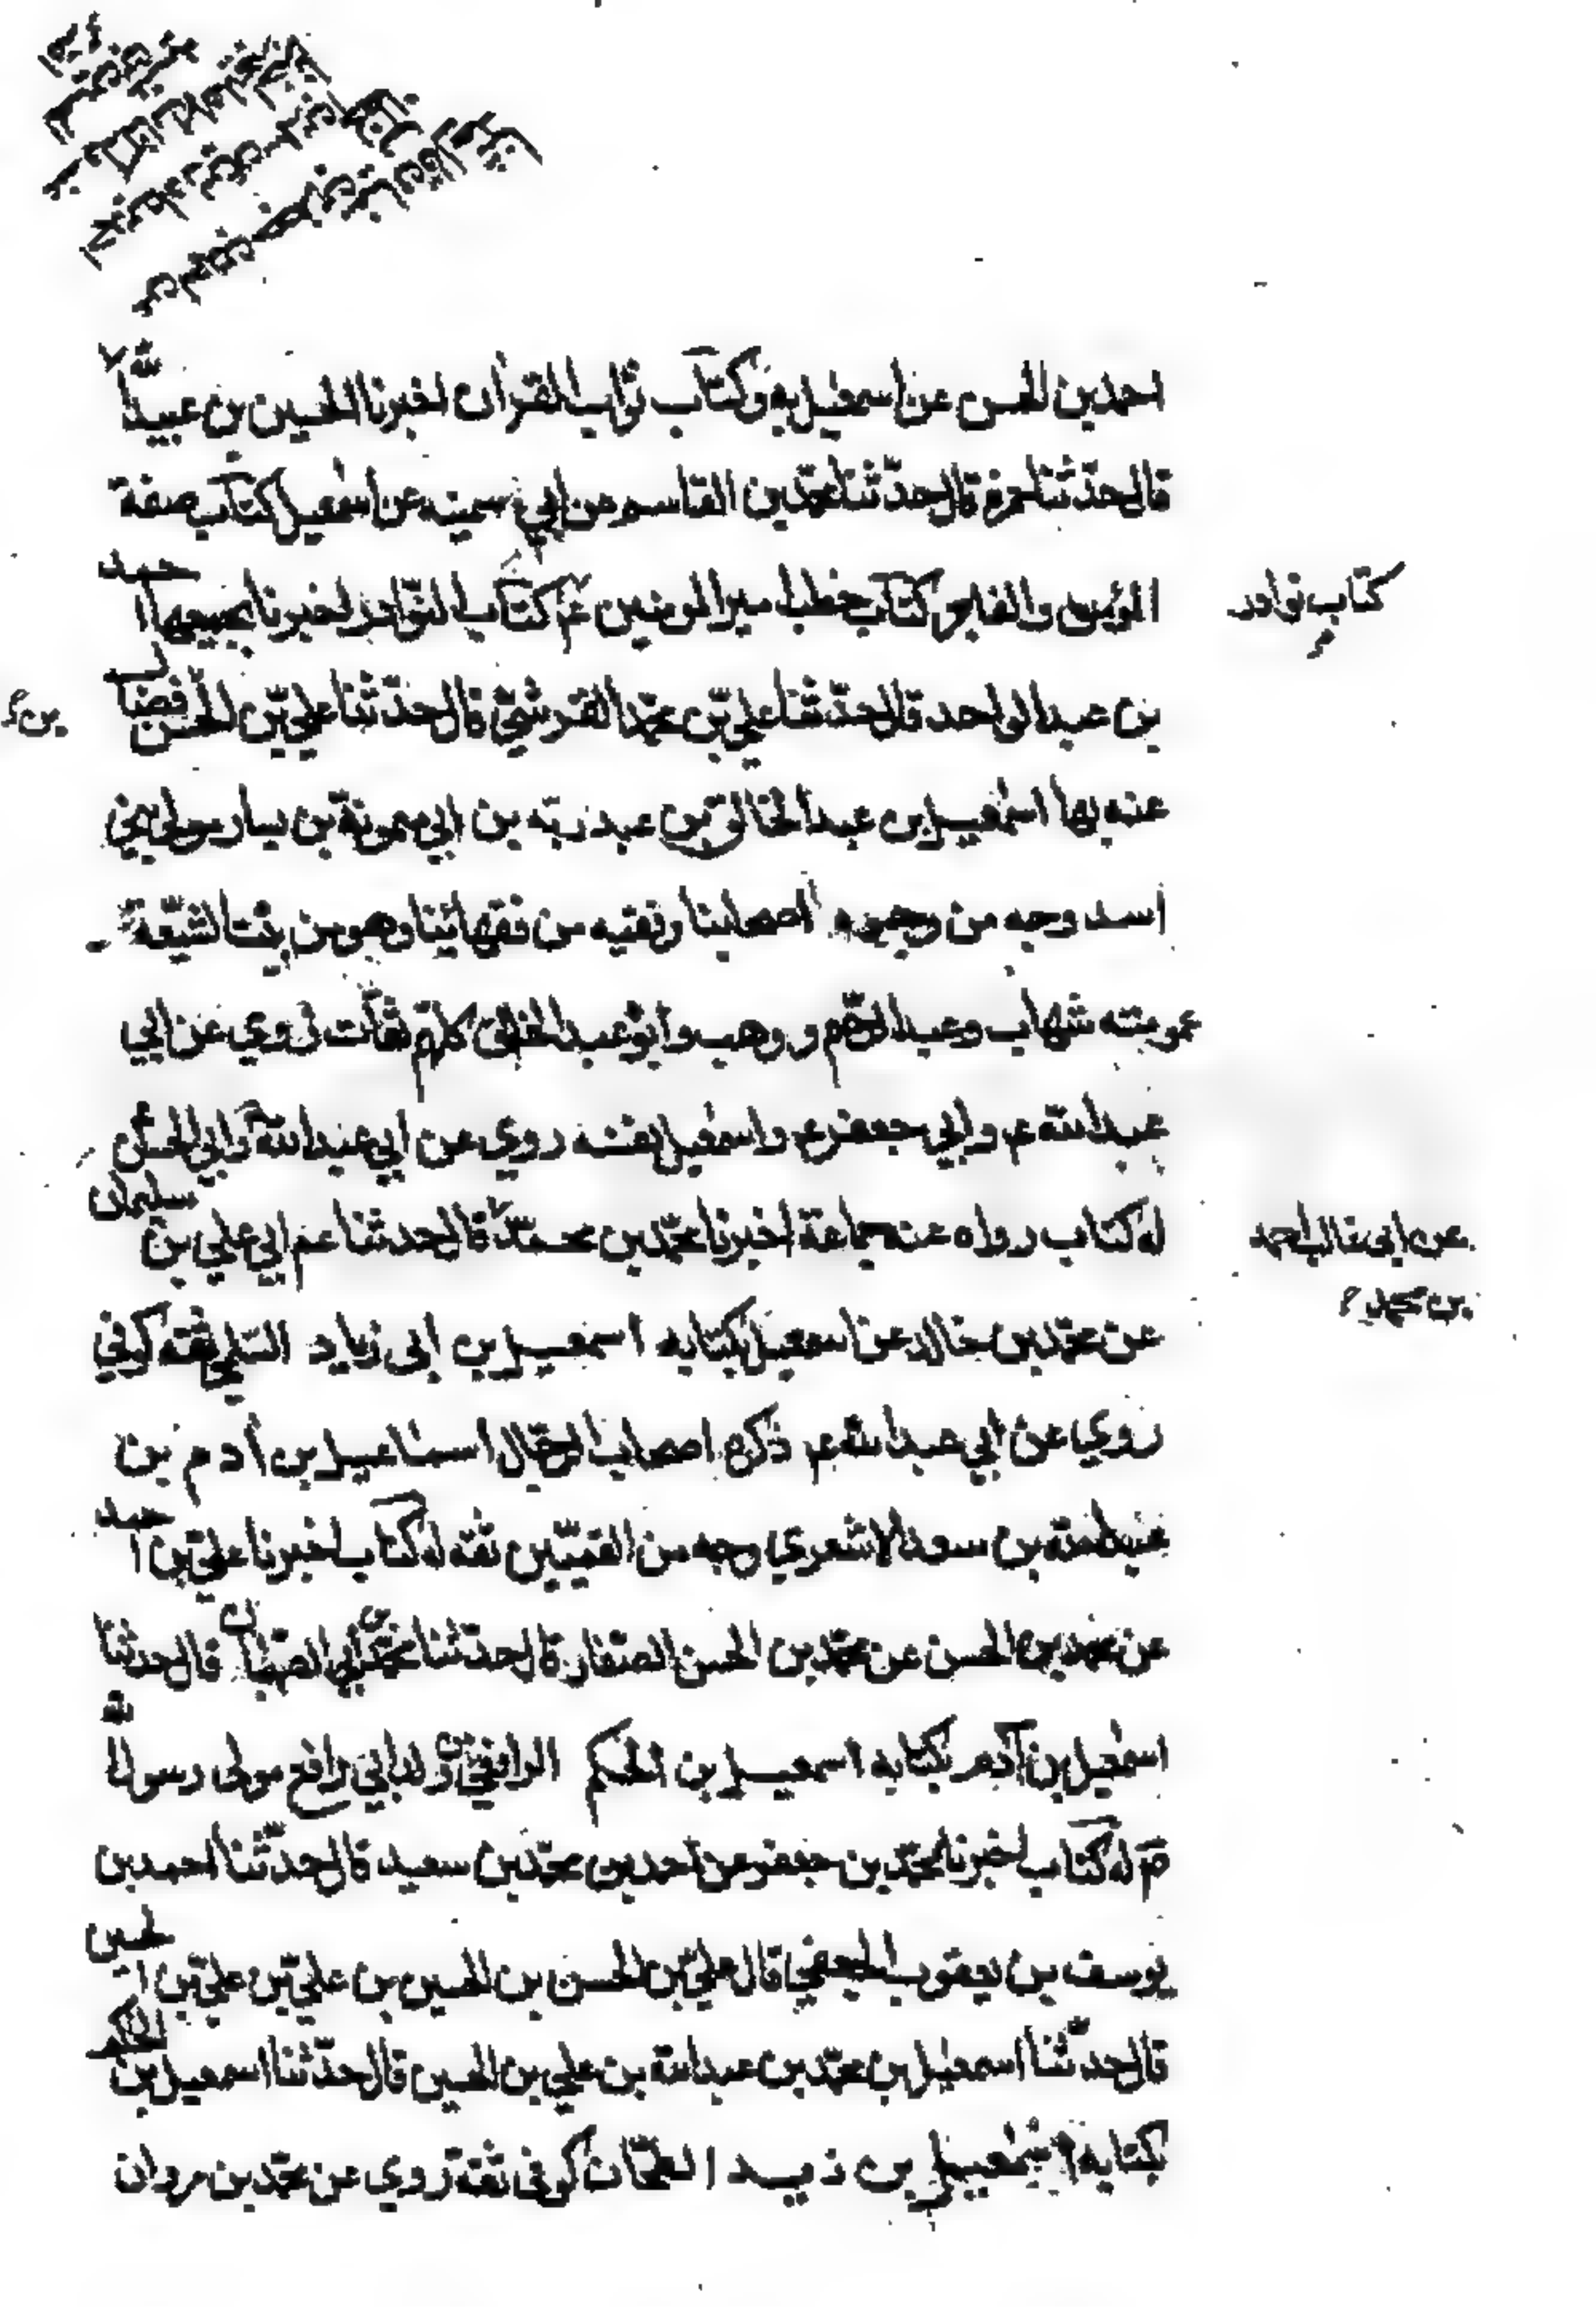 احمد بن الحسن عن اسمعيل به وكتاب ثواب القرأن اخبرنا الحسين بن عبيد الله
قال حدّثنا حمزة قال حدّثنا محمّد بن القاسم عن ابي سمينه عن اسمعيل كتاب صفة
المؤمن والفاجر كتاب خطب امير المومنين عم كتاب النوادر اخبرنا بجميعها احمد
كتاب نوادر
بن عبد الواحد قال حدّثنا علي بن محمّد القرشيّ قال حدّثنا عليّ بن الحسن فضال
بن
عنه بها اسمعيل بن عبد الخالق بن عبد ربّه بن ابي ميمونة بن يسار مولى بني
اسد وجه من وجوه اصحابنا وفقيه من فقهائنا وهو من بيت الشيّعة
عمومته شهاب وعبد الرّحيم ووهب وابوه عبد الخالق كلّهم ثقات روي عن ابي
عبد الله عم وابي جعفر ع واسمعيل نفسه روي عن ابي عبد الله وابي الحسن
له كتاب رواه عنه جماعة اخبرنا محمّد بن محمّد قال حدثنا عم ابي علي بن سليمان
عن ابى غالب احمد
بن محمد
عن محمّد بن خالد عن اسمعيل بكتابه اسمعيل بن ابى زياد السّلمي ثقه كوفي
روي عن ابي عبد الله عم ذكره اصحاب الرّجال اسماعيل بن أدم بن
عبد الله بن سعد الاشعري وجه من القميّين ثقه له كتاب اخبرنا عليّ بن احمد
عن محمد بن الحسن عن محمّد بن الحسن الصفار قال حدثنا محمّد بن ابي الصّهبان قال حدثنا
اسمعيل بن آدم بكتابه اسمعيل بن الحكم الرافعيّ من ولد ابي رافع مولى رسول الله
ص له كتاب اخبرنا محمّد بن جعفر عن احمد بن محمّد بن سعيد قال حدّثنا احمد بن
يوسف بن يعقوب الجعفي قال عليّ بن الحسن بن الحسين بن عليّ بن عليّ بن الحسين
قال حدّثنا اسمعيل بن محمّد بن عبد الله بن علي بن الحسين قال حدّثنا اسمعيل بن الحكم
بكتابه اسمعيل بن زيد الطحّان كوفى ثقة روي عن محمّد بن مروان